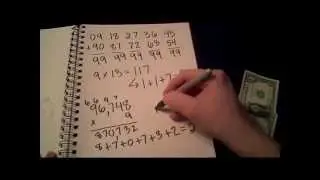 09 18 27 36 45
+90 81 72 63 54
99 99 99 99 99
9 x 13 = 117
↳ 1+1+7=
6 6 4 7
96,748
x 9
870,732
8+7+0+7+3+2=2